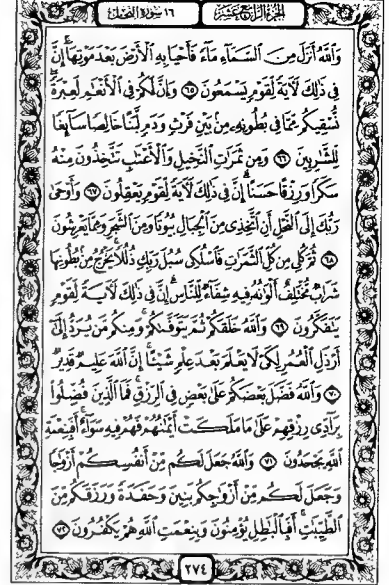 الجزء الرابع عشر ١٦ سورة النحل
وَاللَّهُ أَنزَلَ مِنَ السَّمَاءِ مَاءً فَأَحْيَا بِهِ الْأَرْضَ بَعْدَ مَوْتِهَا إِنَّ
فِي ذَٰلِكَ لَآيَةً لِّقَوْمٍ يَسْمَعُونَ ٦٥ وَإِنَّ لَكُمْ فِي الْأَنْعَامِ لَعِبْرَةً
نُّسْقِيكُم مِّمَّا فِي بُطُونِهِ مِن بَيْنِ فَرْثٍ وَدَمٍ لَّبَنًا خَالِصًا سَائِغًا
لِّلشَّارِبِينَ ٦٦ وَمِن ثَمَرَاتِ النَّخِيلِ وَالْأَعْنَابِ تَتَّخِذُونَ مِنْهُ
سَكَرًا وَرِزْقًا حَسَنًا إِنَّ فِي ذَٰلِكَ لَآيَةً لِّقَوْمٍ يَعْقِلُونَ ٦٧ وَأَوْحَىٰ
رَبُّكَ إِلَى النَّحْلِ أَنِ اتَّخِذِي مِنَ الْجِبَالِ بُيُوتًا وَمِنَ الشَّجَرِ وَمِمَّا يَعْرِشُونَ
٦٨ ثُمَّ كُلِي مِن كُلِّ الثَّمَرَاتِ فَاسْلُكِي سُبُلَ رَبِّكِ ذُلُلًا يَخْرُجُ مِن بُطُونِهَا
شَرَابٌ مُّخْتَلِفٌ أَلْوَانُهُ فِيهِ شِفَاءٌ لِّلنَّاسِ إِنَّ فِي ذَٰلِكَ لَآيَةً لِّقَوْمٍ
يَتَفَكَّرُونَ ٦٩ وَاللَّهُ خَلَقَكُمْ ثُمَّ يَتَوَفَّاكُمْ وَمِنكُم مَّن يُرَدُّ إِلَىٰ
أَرْذَلِ الْعُمُرِ لِكَيْ لَا يَعْلَمَ بَعْدَ عِلْمٍ شَيْئًا إِنَّ اللَّهَ عَلِيمٌ قَدِيرٌ
٧٠ وَاللَّهُ فَضَّلَ بَعْضَكُمْ عَلَىٰ بَعْضٍ فِي الرِّزْقِ فَمَا الَّذِينَ فُضِّلُوا
بِرَادِّي رِزْقِهِمْ عَلَىٰ مَا مَلَكَتْ أَيْمَانُهُمْ فَهُمْ فِيهِ سَوَاءٌ أَفَبِنِعْمَةِ
اللَّهِ يَجْحَدُونَ ٧١ وَاللَّهُ جَعَلَ لَكُم مِّنْ أَنفُسِكُمْ أَزْوَاجًا
وَجَعَلَ لَكُم مِّنْ أَزْوَاجِكُم بَنِينَ وَحَفَدَةً وَرَزَقَكُم مِّنَ
الطَّيِّبَاتِ أَفَبِالْبَاطِلِ يُؤْمِنُونَ وَبِنِعْمَتِ اللَّهِ هُمْ يَكْفُرُونَ ٧٢
٢٧٤